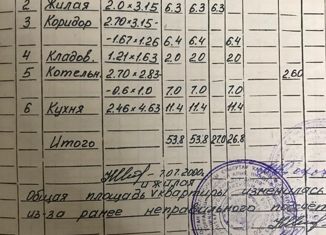 2 Жилая 2.0×3.15 6.3 6.3 6.3
3 Коридор 2.70×3.15-
-1.67×1.26 6.4 6.4 6.4
4 Кладов. 1.21×1.63 2.0 2.0 2.0
5 Котельн. 2.70×2.83- 2.60
-0.6×1.0 7.0 7.0 7.0
6 Кухня 2.46×4.63 11.4 11.4 11.4
Итого 53.8 53.8 27.0 26.8
7.07.2000г
и жилая
Общая площадь квартиры изменилась
из-за ранее неправильного подсчёта